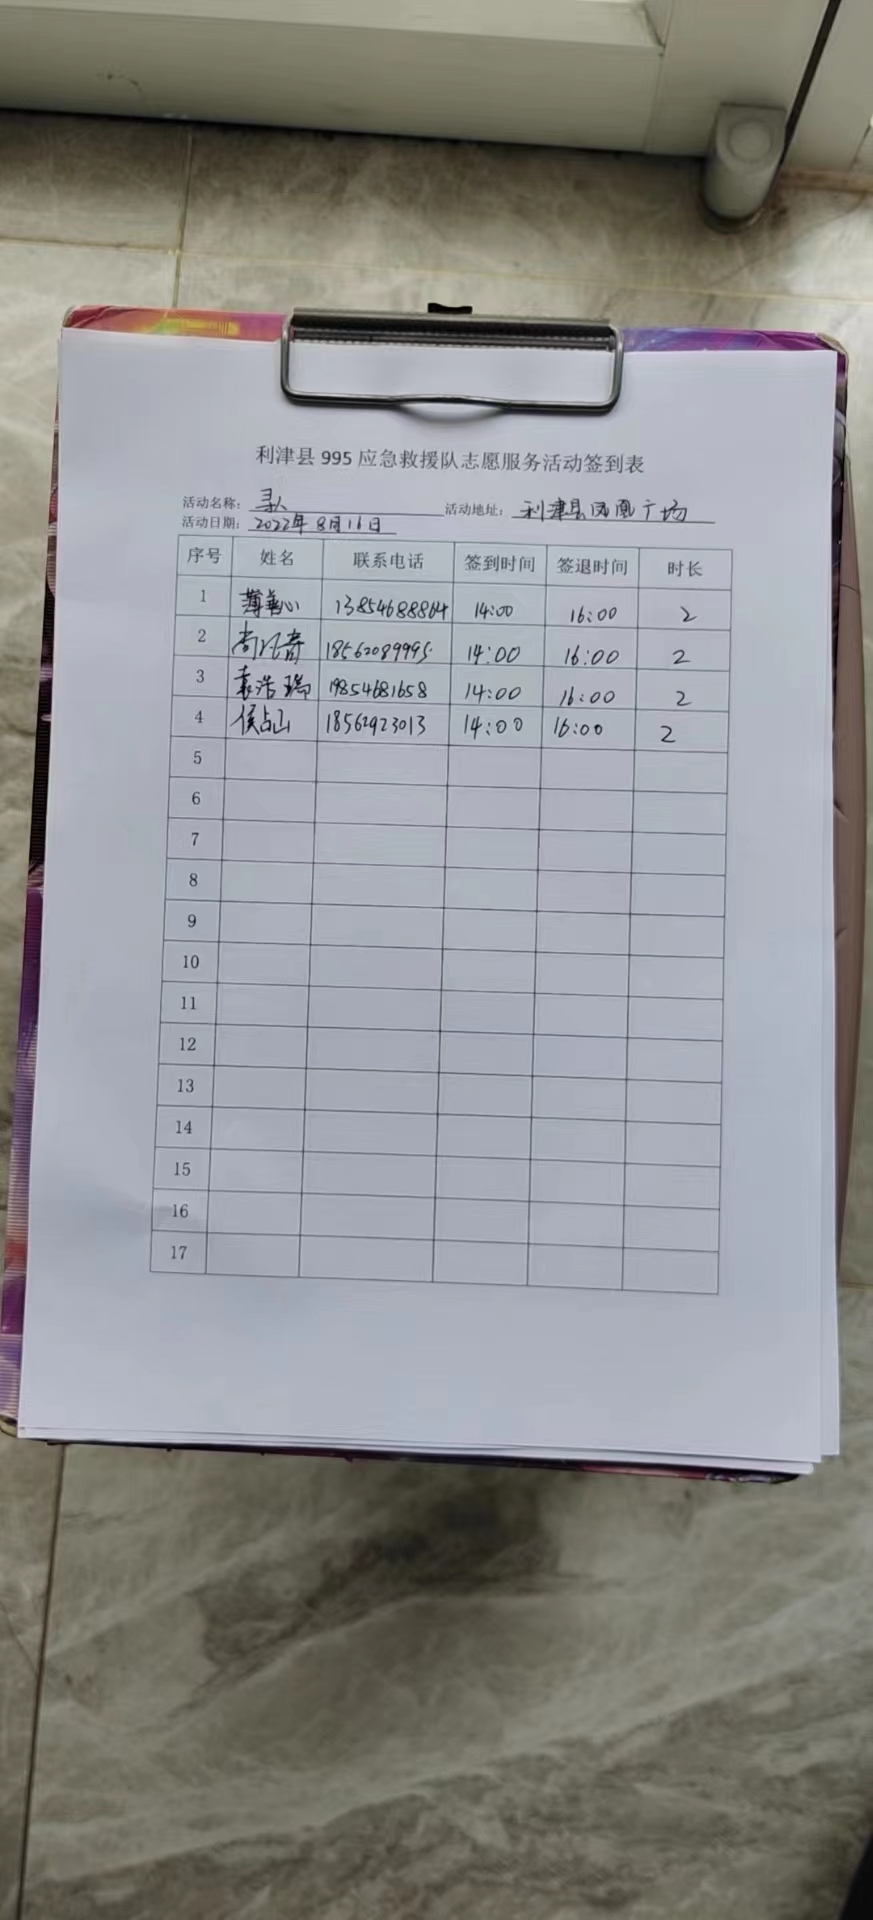 利津县 995 应急救援队志愿服务活动签到表
活动名称: 寻人 活动地址: 利津县凤凰广场
活动日期: 2022年8月16日
序号 姓名 联系电话 签到时间 签退时间 时长
1 薄善心 13854688864 14:00 16:00 2
2 18562089995 14:00 16:00 2
3 袁浩瑞 19854681658 14:00 16:00 2
4 侯占山 18562923013 14:00 16:00 2
5
6
7
8
9
10
11
12
13
14
15
16
17